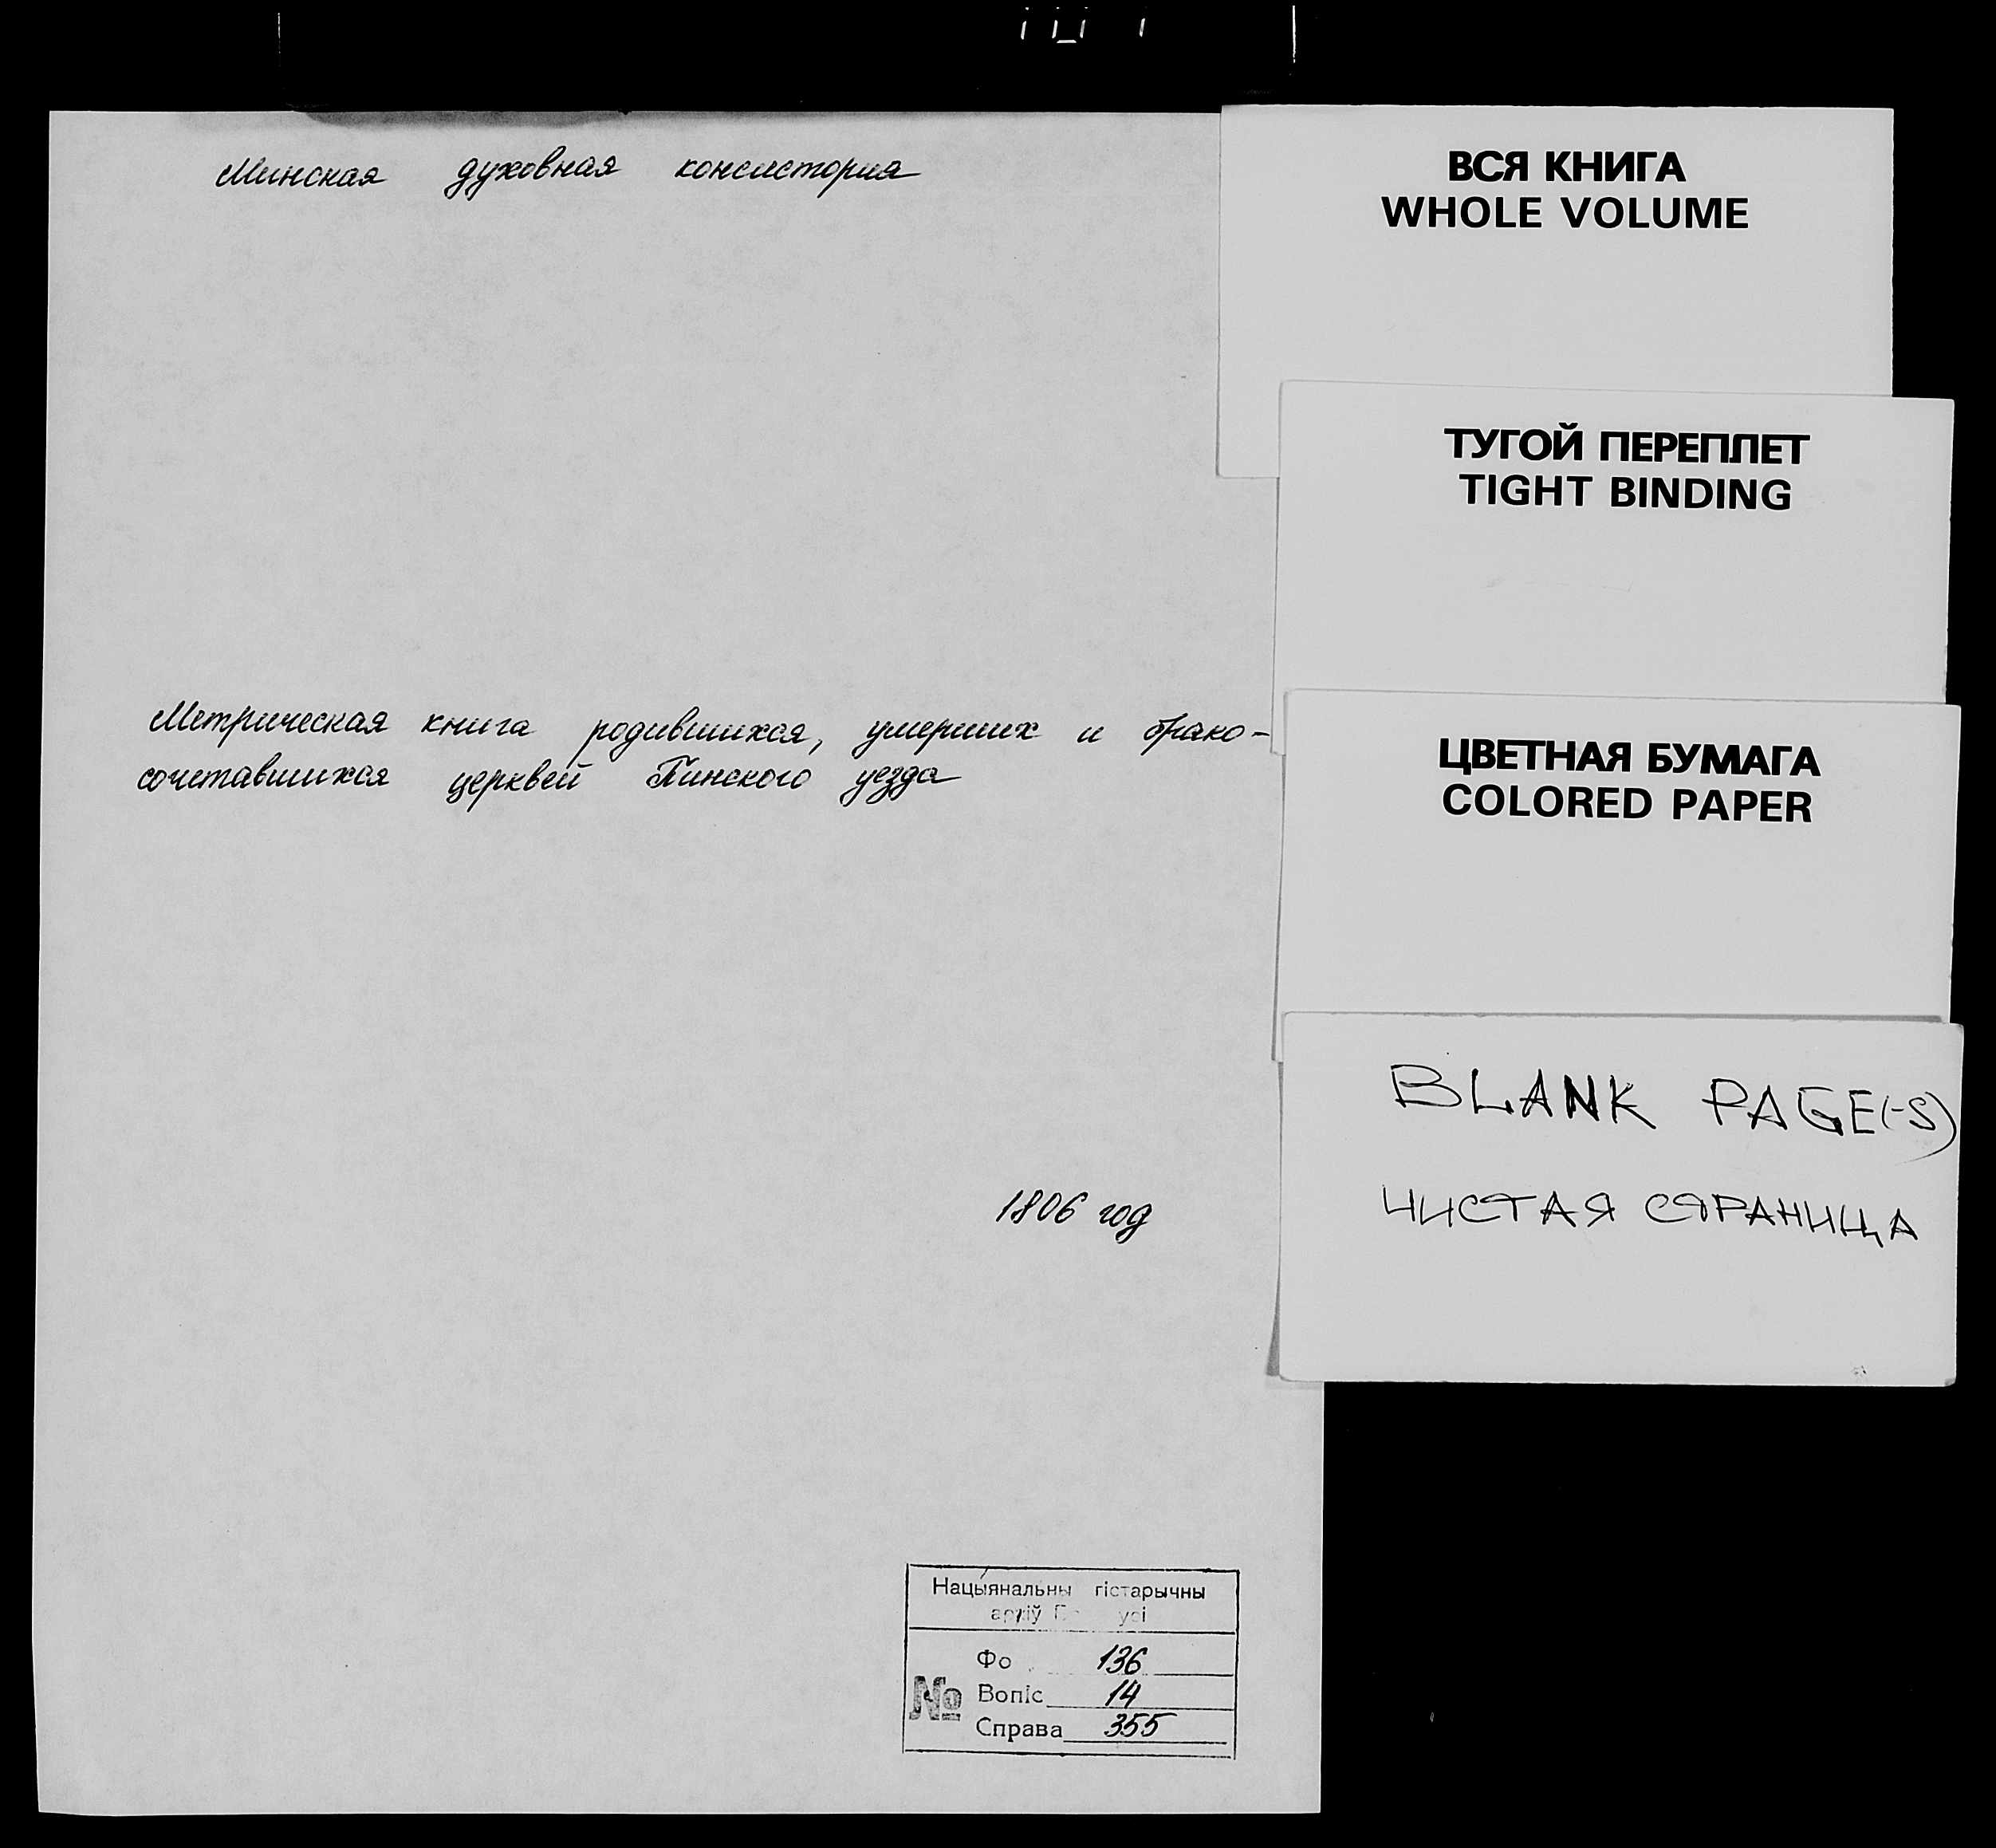 Минская духовная консистория
Метрическая книга родившихся, умерших и брако-
сочетавшихся церквей Пинского уезда
1806 год
Нацыянальны гістарычны
архіў
Фо 136
№ Вопіс 14
Справа 355
ВСЯ КНИГА
WHOLE VOLUME
ТУГОЙ ПЕРЕПЛЕТ
TIGHT BINDING
ЦВЕТНАЯ БУМАГА
COLORED PAPER
BLANK PAGE(-S)
ЧИСТАЯ СТРАНИЦА